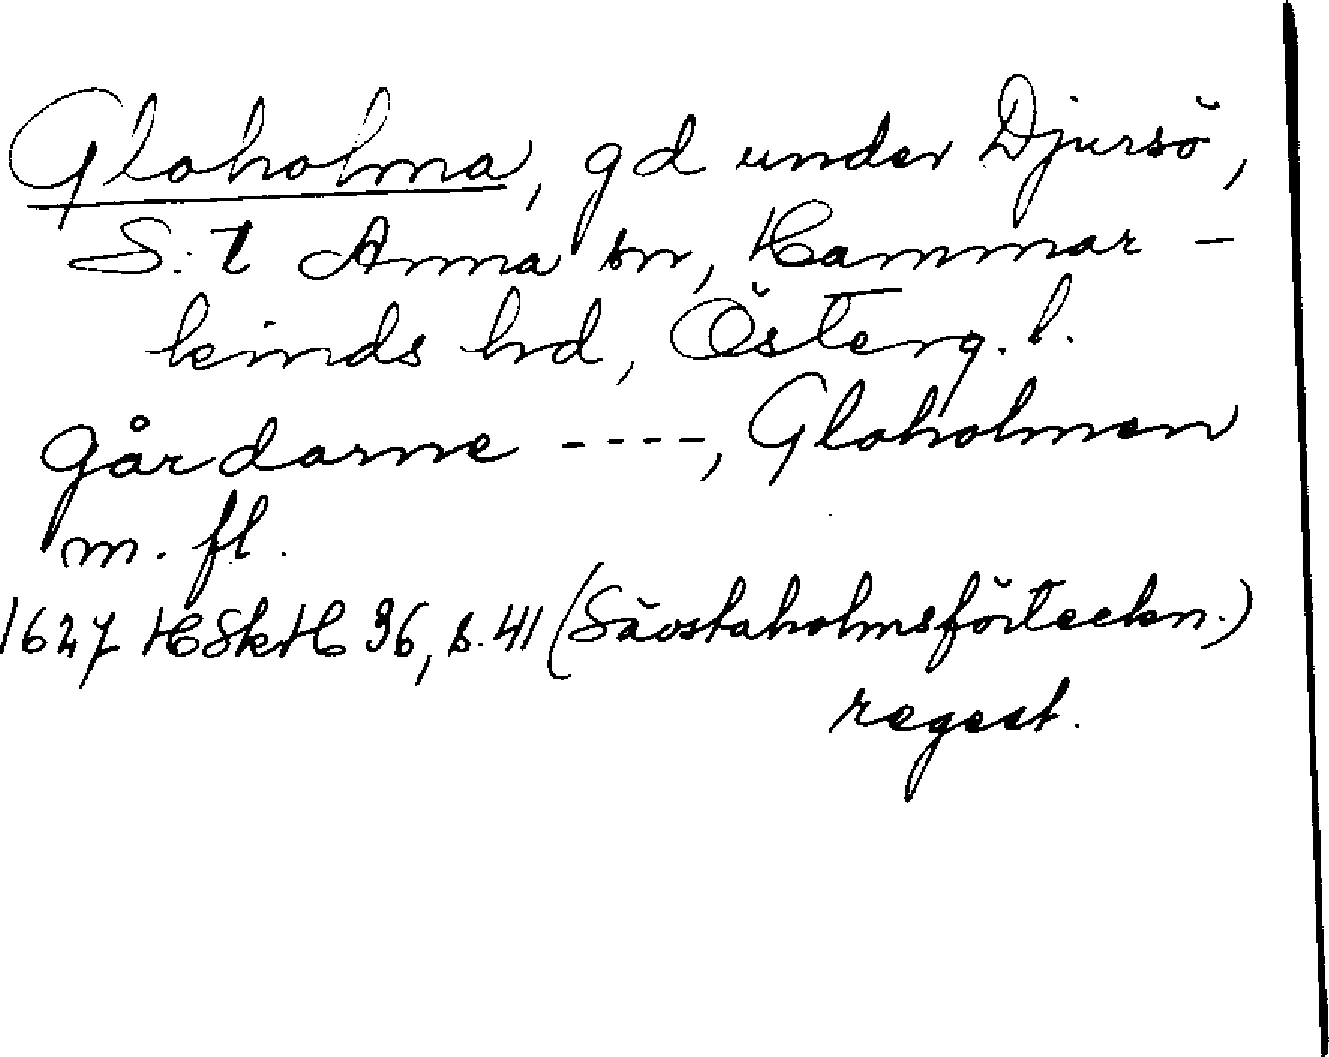 Gloholma, gd under Djursö,
S:t Anna sn, Hammar-
kinds hd, Österg. l.
gårdarne ----, Gloholmen
m. fl.
1627 HSkH 36, s. 41 (Sävstaholmsförteckn.)
regest.